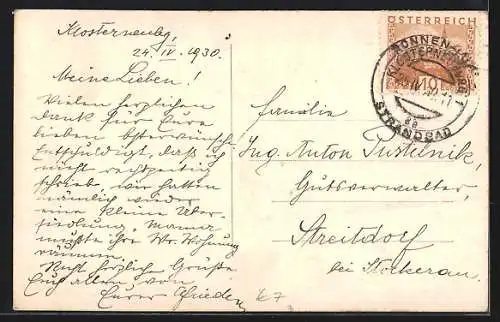 Klosterneubg,
24. IV. 1930.
Meine Lieben!
Vielen herzlichen
dank für Eure
lieben Osterwünsche
Entschuldigt, daß ich
nicht rechtzeitig
schrieb, wir hatten
nämlich wieder
eine kleine Über-
siedlung, Mama
mußte ihre Wr. Wohnung
räumen.
Recht herzliche Grüße
Euch allen von
Eurer
ÖSTERREICH
10
KLOSTERNEUBURG 1
STRANDBAD
Familie
Ing. Anton Pustelnik,
Gutsverwalter,
Streitdorf
bei Stockerau.